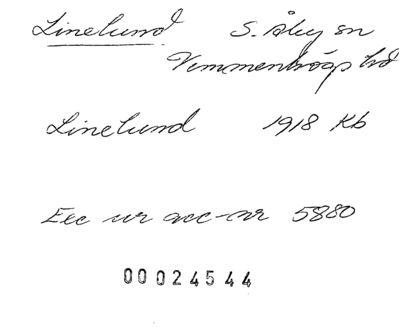 Linelund S. Åby sn
Vemmenhögs hd
Linelund 1918 Kb
Exc ur acc-nr 5880
00024544